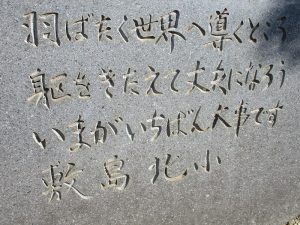 羽ばたく世界へ導くところ
躯をきたえて丈夫になろう
いまがいちばん大事です
敷島北小